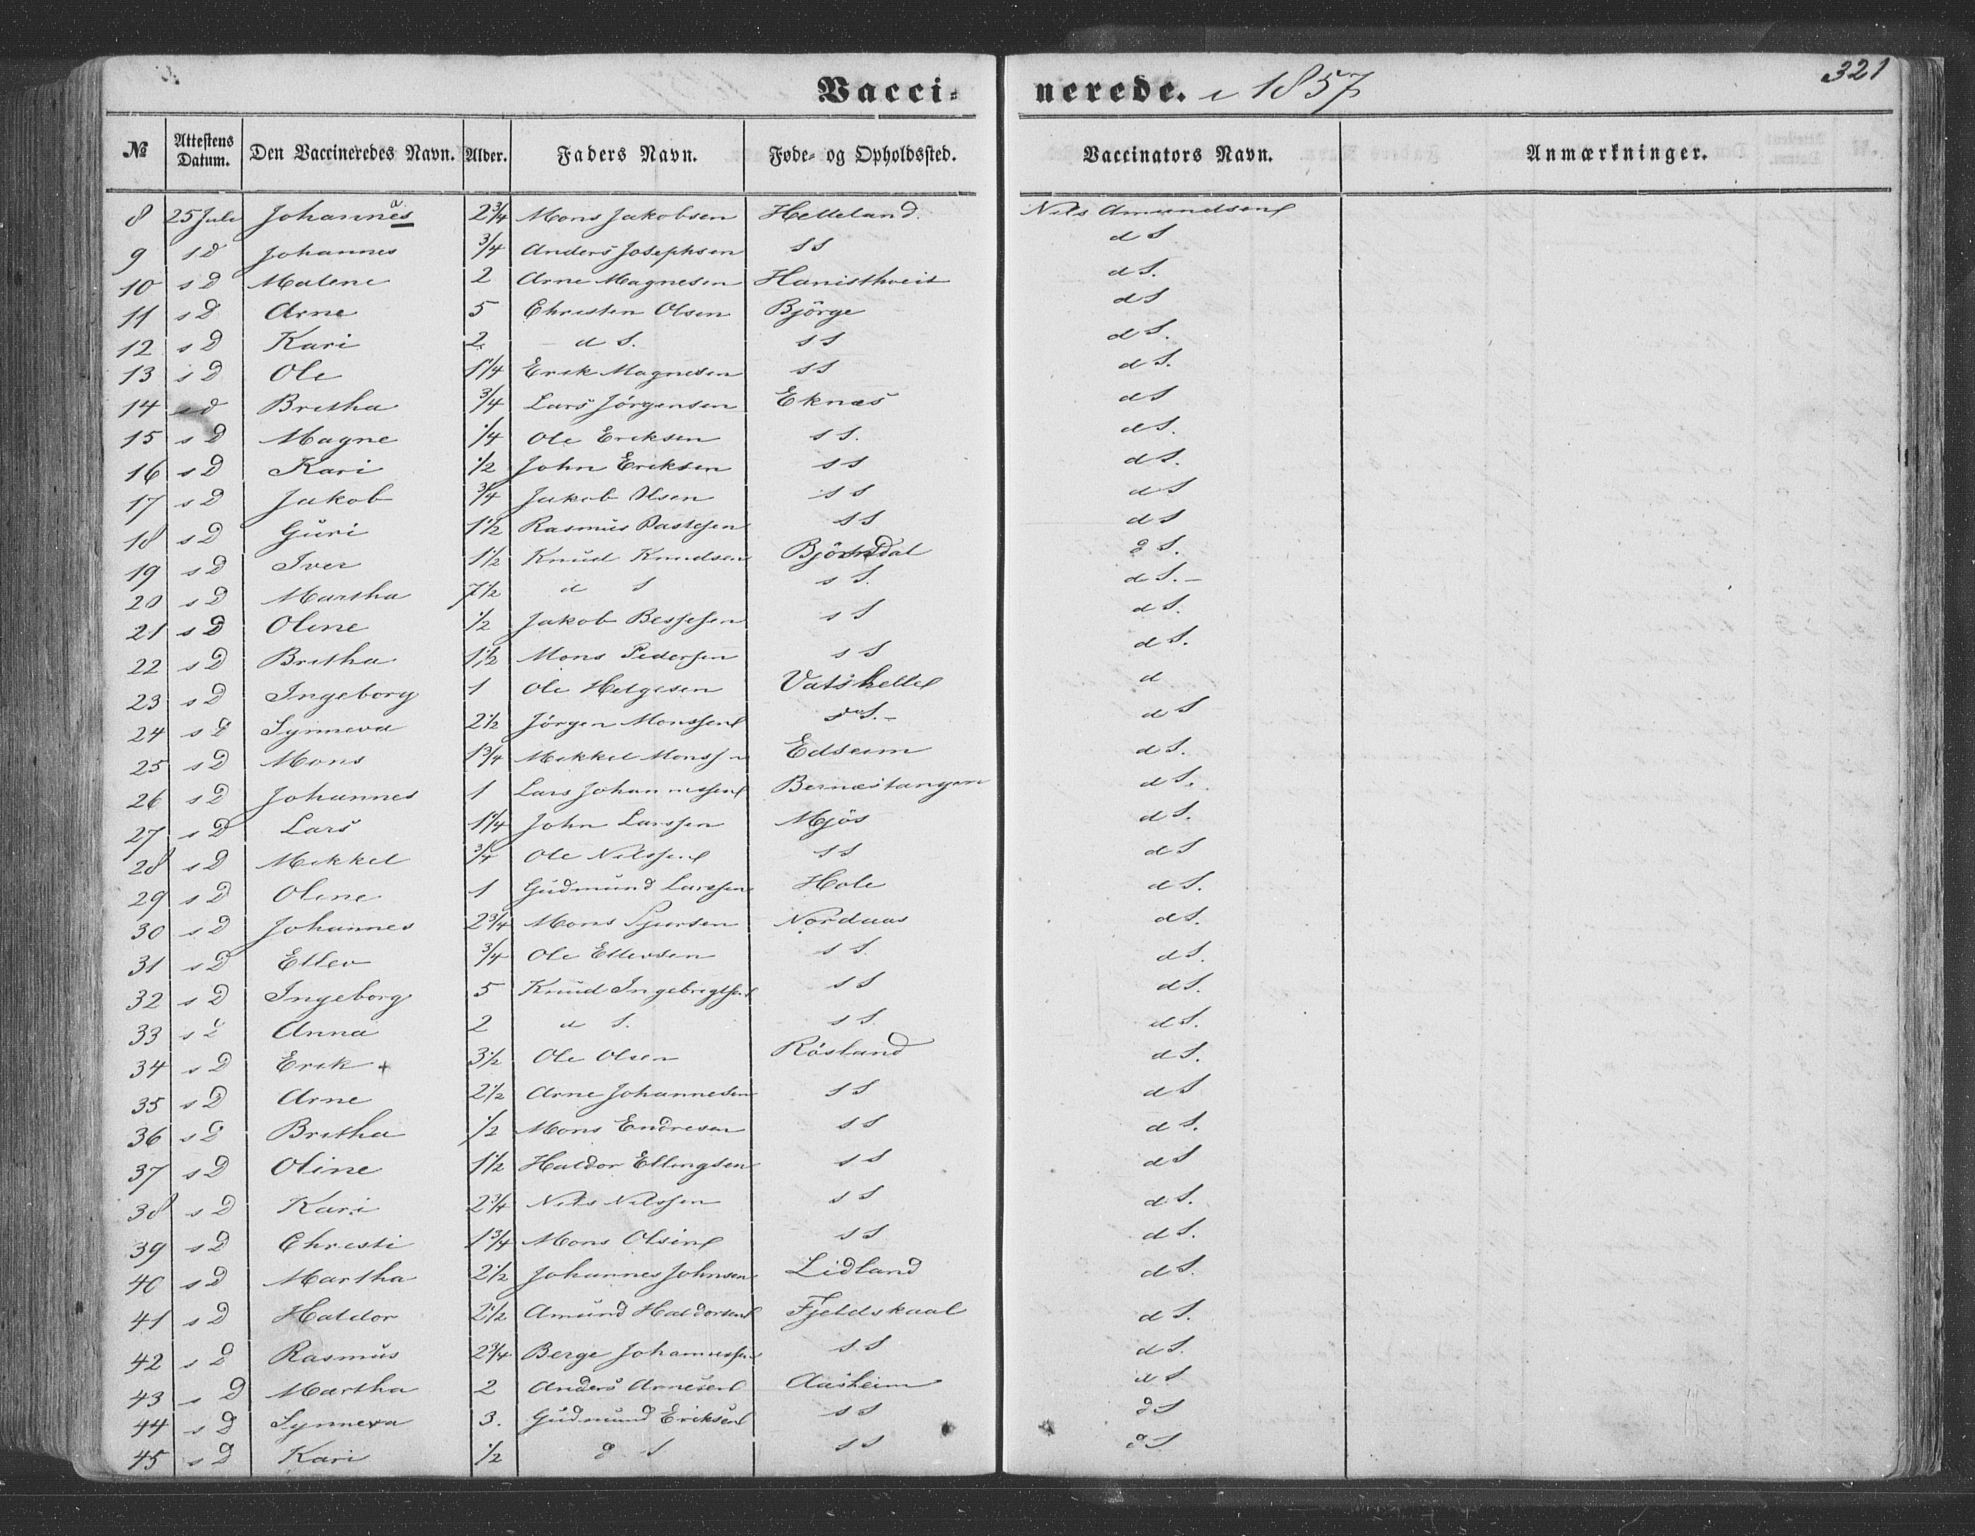 Vacci-nerede. i 1857 321
№ Attestens Datum. Den Vaccineredes Navn. Alder. Faders Navn. Føde- og Opholdssted. Vaccinators Navn. Anmærkninger.
8 25 Juli Johannes 2 3/4 Mons Jakobsen Helleland. Nils Amundsen
9 s D Johannes 3/4 Anders Josephsen s S d S
10 s D Malene 2 Arne Magnesen Hanisthveit d S.
11 s D Arne 5 Christen Olsen Björge d S
12 s D Kari 2 d S. s S d S.
13 s D Ole 1 1/4 Erik Magnesen s S d S.
14 s d Britha 3/4 Lars Jörgensen Eknæs d S
15 s D Magne 1/4 Ole Eriksen s S. d S.
16 s D Kari 1/2 John Eriksen s S d S.
17 s D Jakob 3/4 Jakob Olsen s S d S
18 s D Guri 1 1/2 Rasmus s S d S
19 s D Iver 1 1/2 Knud Knudsen Björndal d S.
20 s D Martha 7 1/2 d S s S. d S.-
21 s D Oline 1/2 Jakob s S d S.
22 s D Britha 1 1/2 Mons Pedersen s S d S.
23 s D Ingeborg 1 Ole Helgesen Vatshelle d
24 s D Synneva 2 1/2 Jörgen Monssen s S.- d S
25 s D Mons 1 3/4 Mekkel Monssen Edseim d S.
26 s D Johannes 1 Lars Johannessen Bernæstangen d S.
27 s D Lars 1 1/4 John Larssen Mjös d S.
28 s D Mekkel 3/4 Ole Nilssen s S d S
29 s D Oline 1 Gudmund Larssen Hole d S.
30 s D Johannes 2 3/4 Mons Sjursen Nordaas d S.
31 s D Ellev 3/4 Ole Ellevsen s S. d S.
32 s D Ingeborg 5 Knud Ingebrigtsen s S d S.
33 s D Anna 2 d S. s S. d S.
34 s D Erik + 3 1/2 Ole Olsen Rösland d S.
35 s D Arne 2 1/2 Arne Johannesen s S d S
36 s D Britha 1/2 Mons Endresen s S d S.
37 s D Oline 1 1/2 Haldor Ellingsen s S d S
38 s D Kari 2 3/4 Nils Nilssen s S d S.
39 s D Christi 1 3/4 Mons Olsen s S d S.
40 s D Martha 2 1/2 Johannes Johnsen Lidland d S.
41 s D Haldor 2 1/2 Amund Haldorsen Fjeldskaal d S.
42 s D Rasmus 2 3/4 Berge Johannessen s S d S.
43 s D Martha 2 Anders Arnesen Aasheim d S
44 s D Synneva 3. Gudmund Eriksen s S d S
45 s D Kari 1/2 d S s S d S.